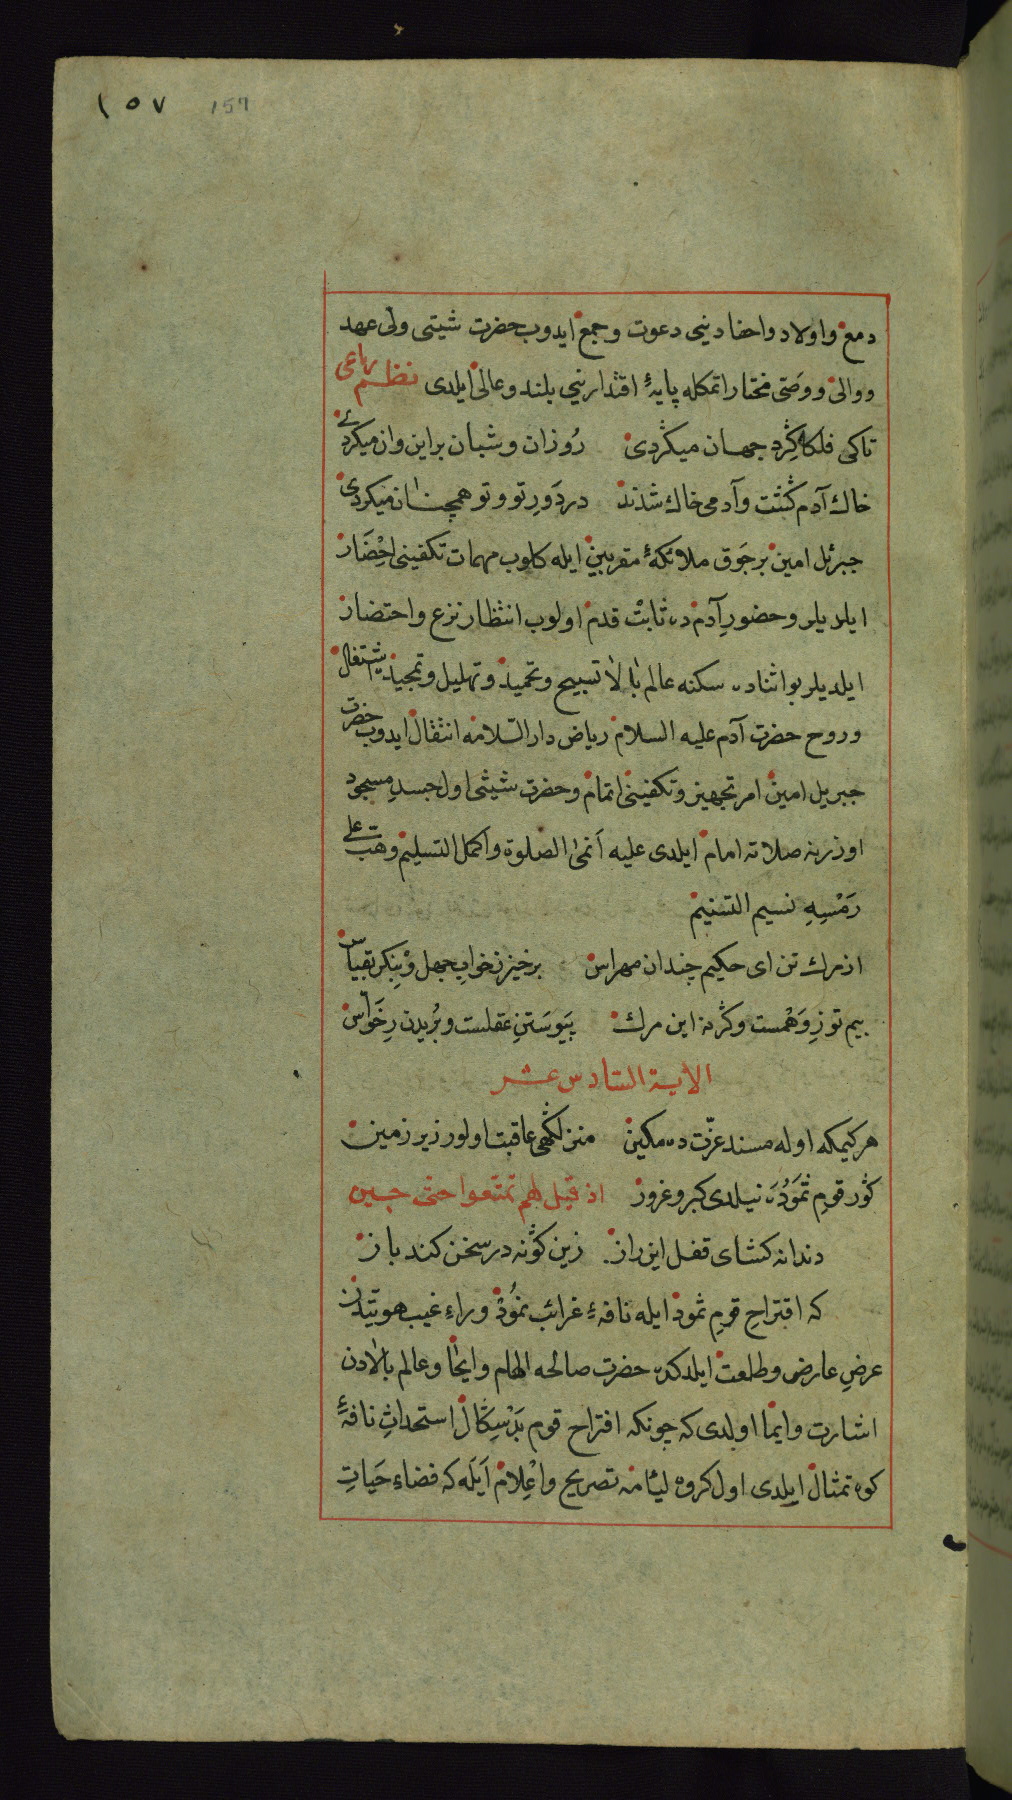 ١٥٧ 157
دمع واولاد واحفادینی دعوت وجمع ایدوب حضرت شیثی ولی عهد
ووالی ووصی مختار اتمکله پایهٔ اقتدارینی بلند وعالی ایلدی نظم رباعی
تاکی فلکا گرد جهان میگردی روزان وشبان بر این وان میگردی
خاك آدم گشت وآدمی خاك شدند در دَورِ تو وتو همچنان میکردی
جبرئل امین بر جَوق ملائکهٔ مقربین ایله کلوب مهمات تکفینی اِحْضَار
ایلدیلر وحضورِ آدم ده ثابت قدم اولوب انتظار نزع واحتضار
ایلدیلر بو اثناده سکنه عالم بالا تسبیح وتحمید وتهلیل وتمجیده اشتغال
وروح حضرت آدم علیه السلام ریاض دار السلامه انتقال ایدوب حضرت
جبریل امین امر تجهیز وتکفینی اتمام وحضرت شیثی اول جسدِ مسجود
اوزرینه صلاته امام ایلدی علیه اَنمی الصلوة واکمل التسلیم وهبّ علی
رَمْسِهِ نسیم التسنیم
از مرك تن ای حکیم چندان مهراس برخیز ز خوابِ جهل وبِنِکر بقیاس
بیم تو زِ وَهْمست وکرنه این مرك پَیوسَتنِ عقلست وبُریدن زِحَواس
الایة السادس عشر
هر کیمکه اوله مسند عزّت ده مکین منزلکهی عاقبت اولور زیر زمین
کور قومِ ثمَوُدَه نیلدی کبر وغرور اذ قیل لهم تمتعوا حتی حین
دندانه کشای قفل این راز زین کونه در سخن کند باز
که اقتراحِ قومِ ثمود ایله ناقهٔ غرائب نمُود وراء غیب هویتدن
عرضِ عارض وطلعت ایلدکده حضرت صالحه الهام وایحا وعالم بالادن
اشارت وایما اولدی که چونکه اقتراح قوم بَدْسِکال استحداثِ ناقهٔ
کوه تمثال ایلدی اول کروه لیٔامه تصریح واعْلام اَیَله که فضاء حَیاتِ